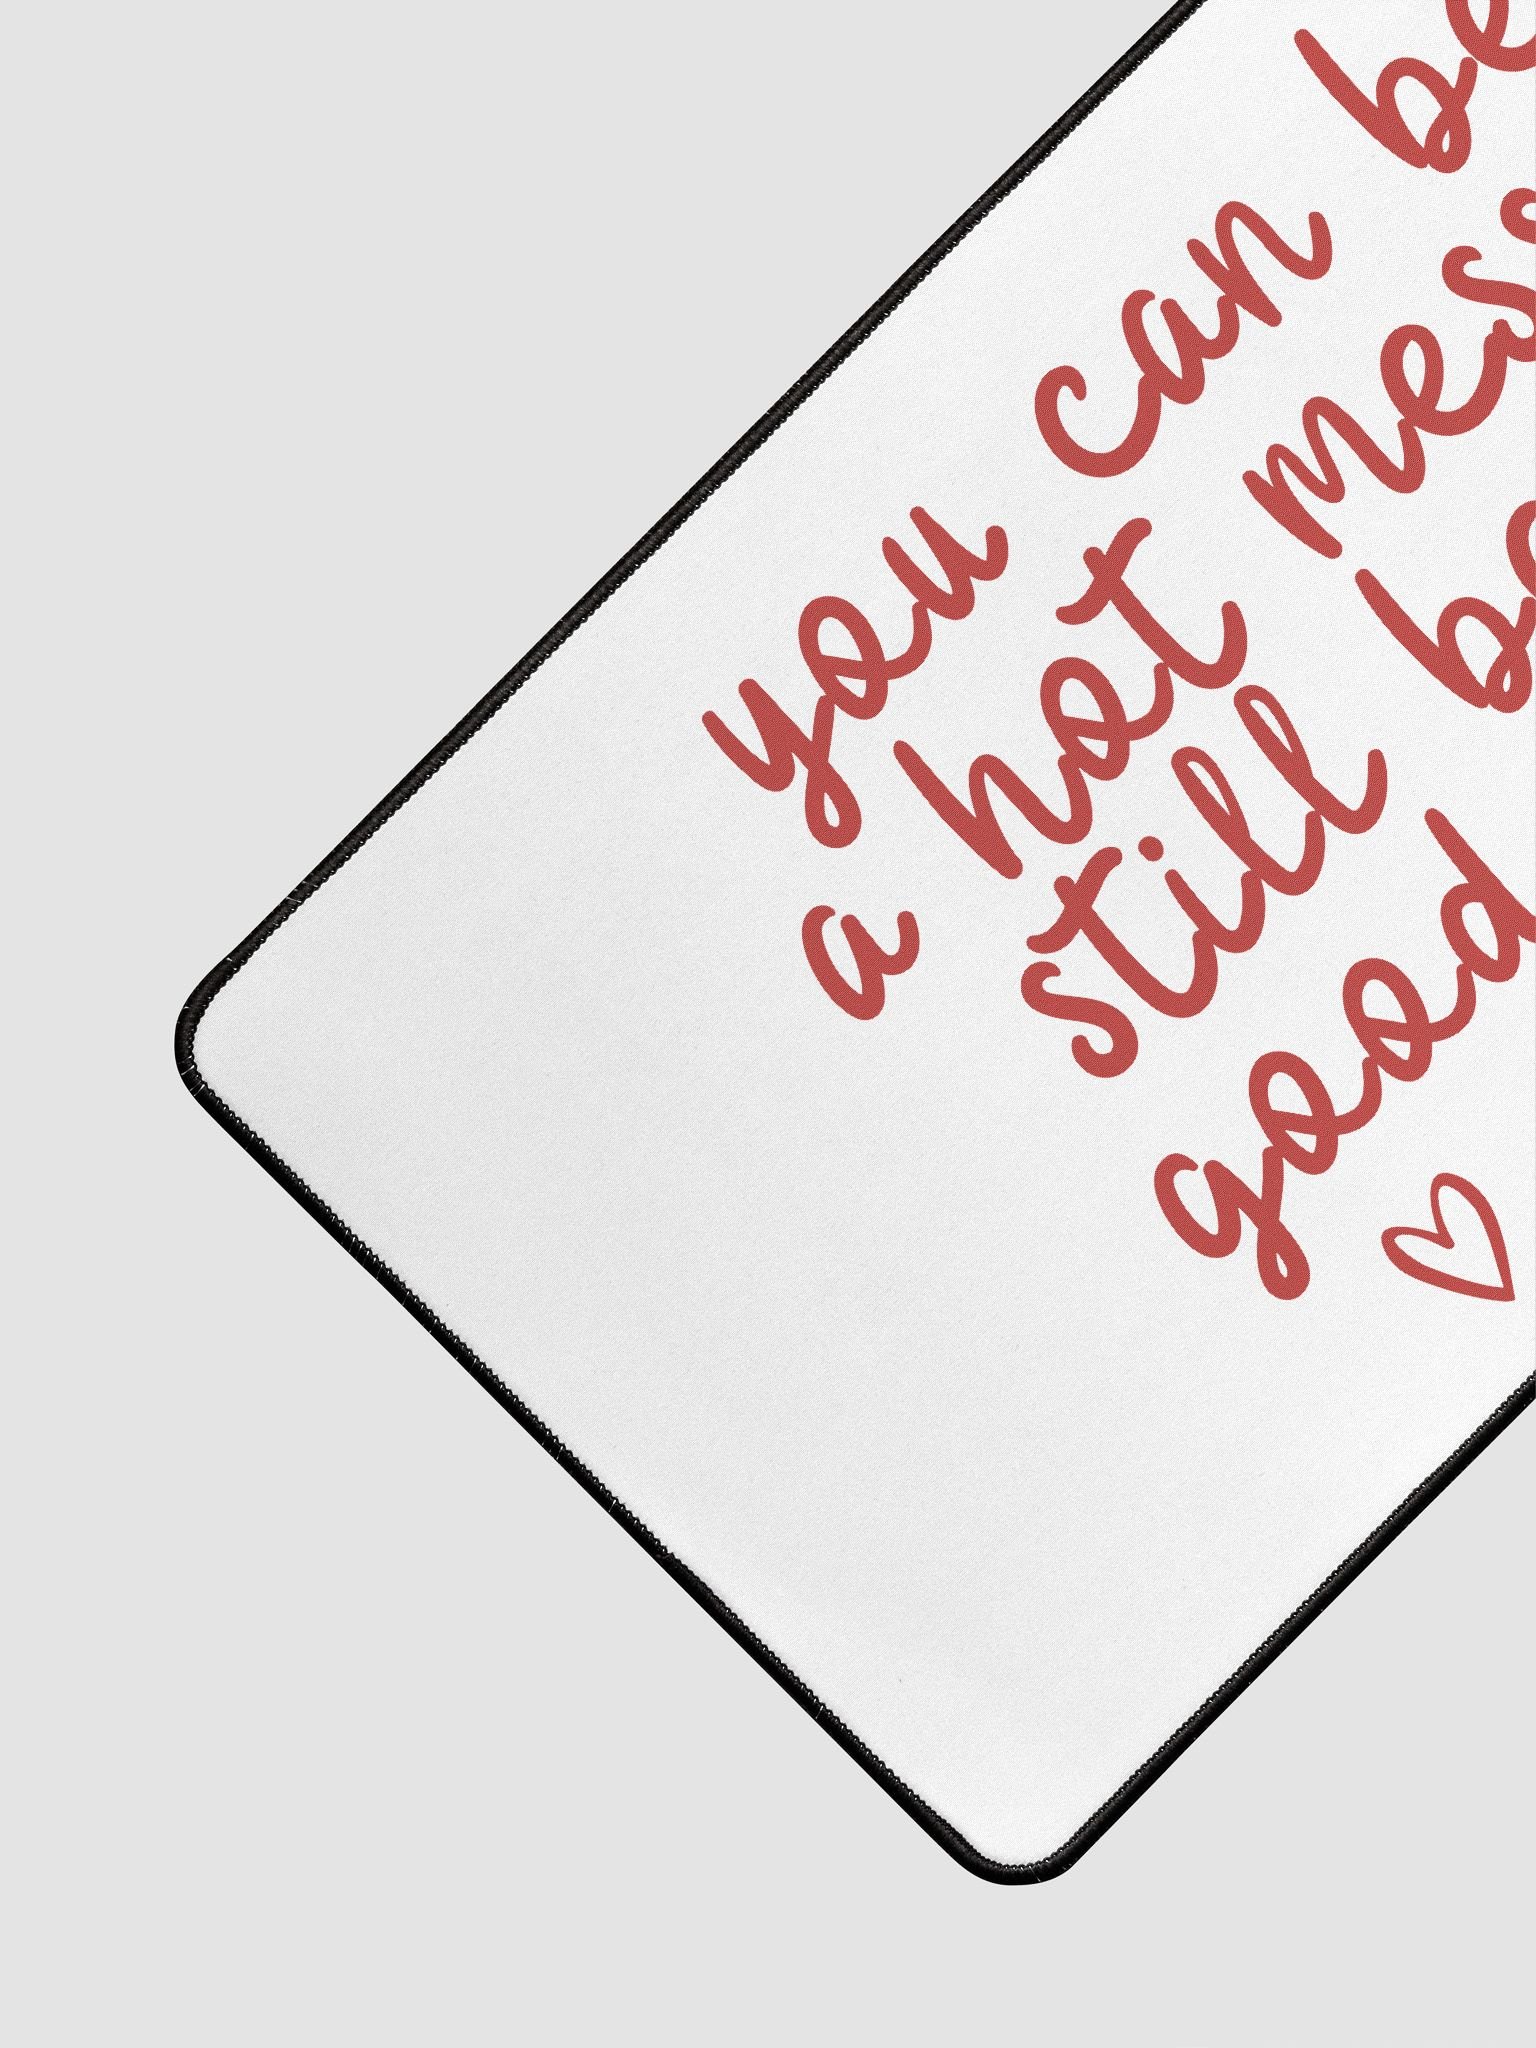 you can be
a hot mess
still
good